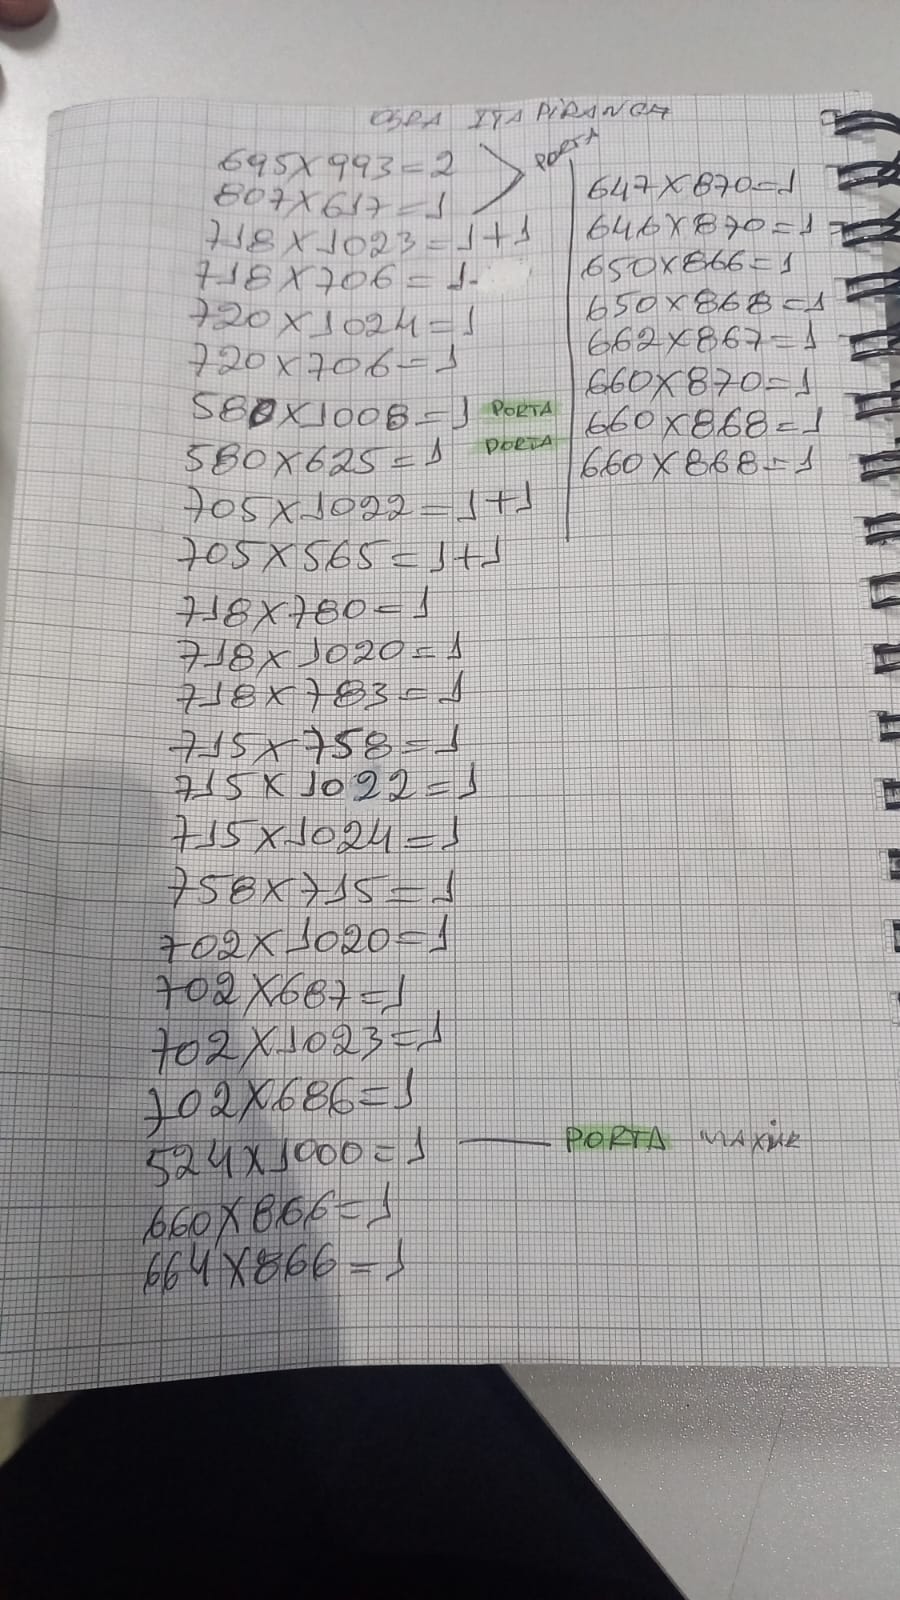 OBRA ITAPIRANGA
695X993=2
807X617=1
PORTA
718X1023=1+1
718X706=1-
720X1024=1
720X706=1
580X1008=1 PORTA
580X625=1 PORTA
705X1022=1+1
705X565=1+1
718X780=1
718X1020=1
718X783=1
715X758=1
715X1022=1
715X1024=1
758X715=1
702X1020=1
702X687=1
702X1023=1
702X686=1
524X1000=1 —— PORTA
660X866=1
664X866=1
647X870=1
646X870=1
650X866=1
650X868=1
662X867=1
660X870=1
660X868=1
660X868=1